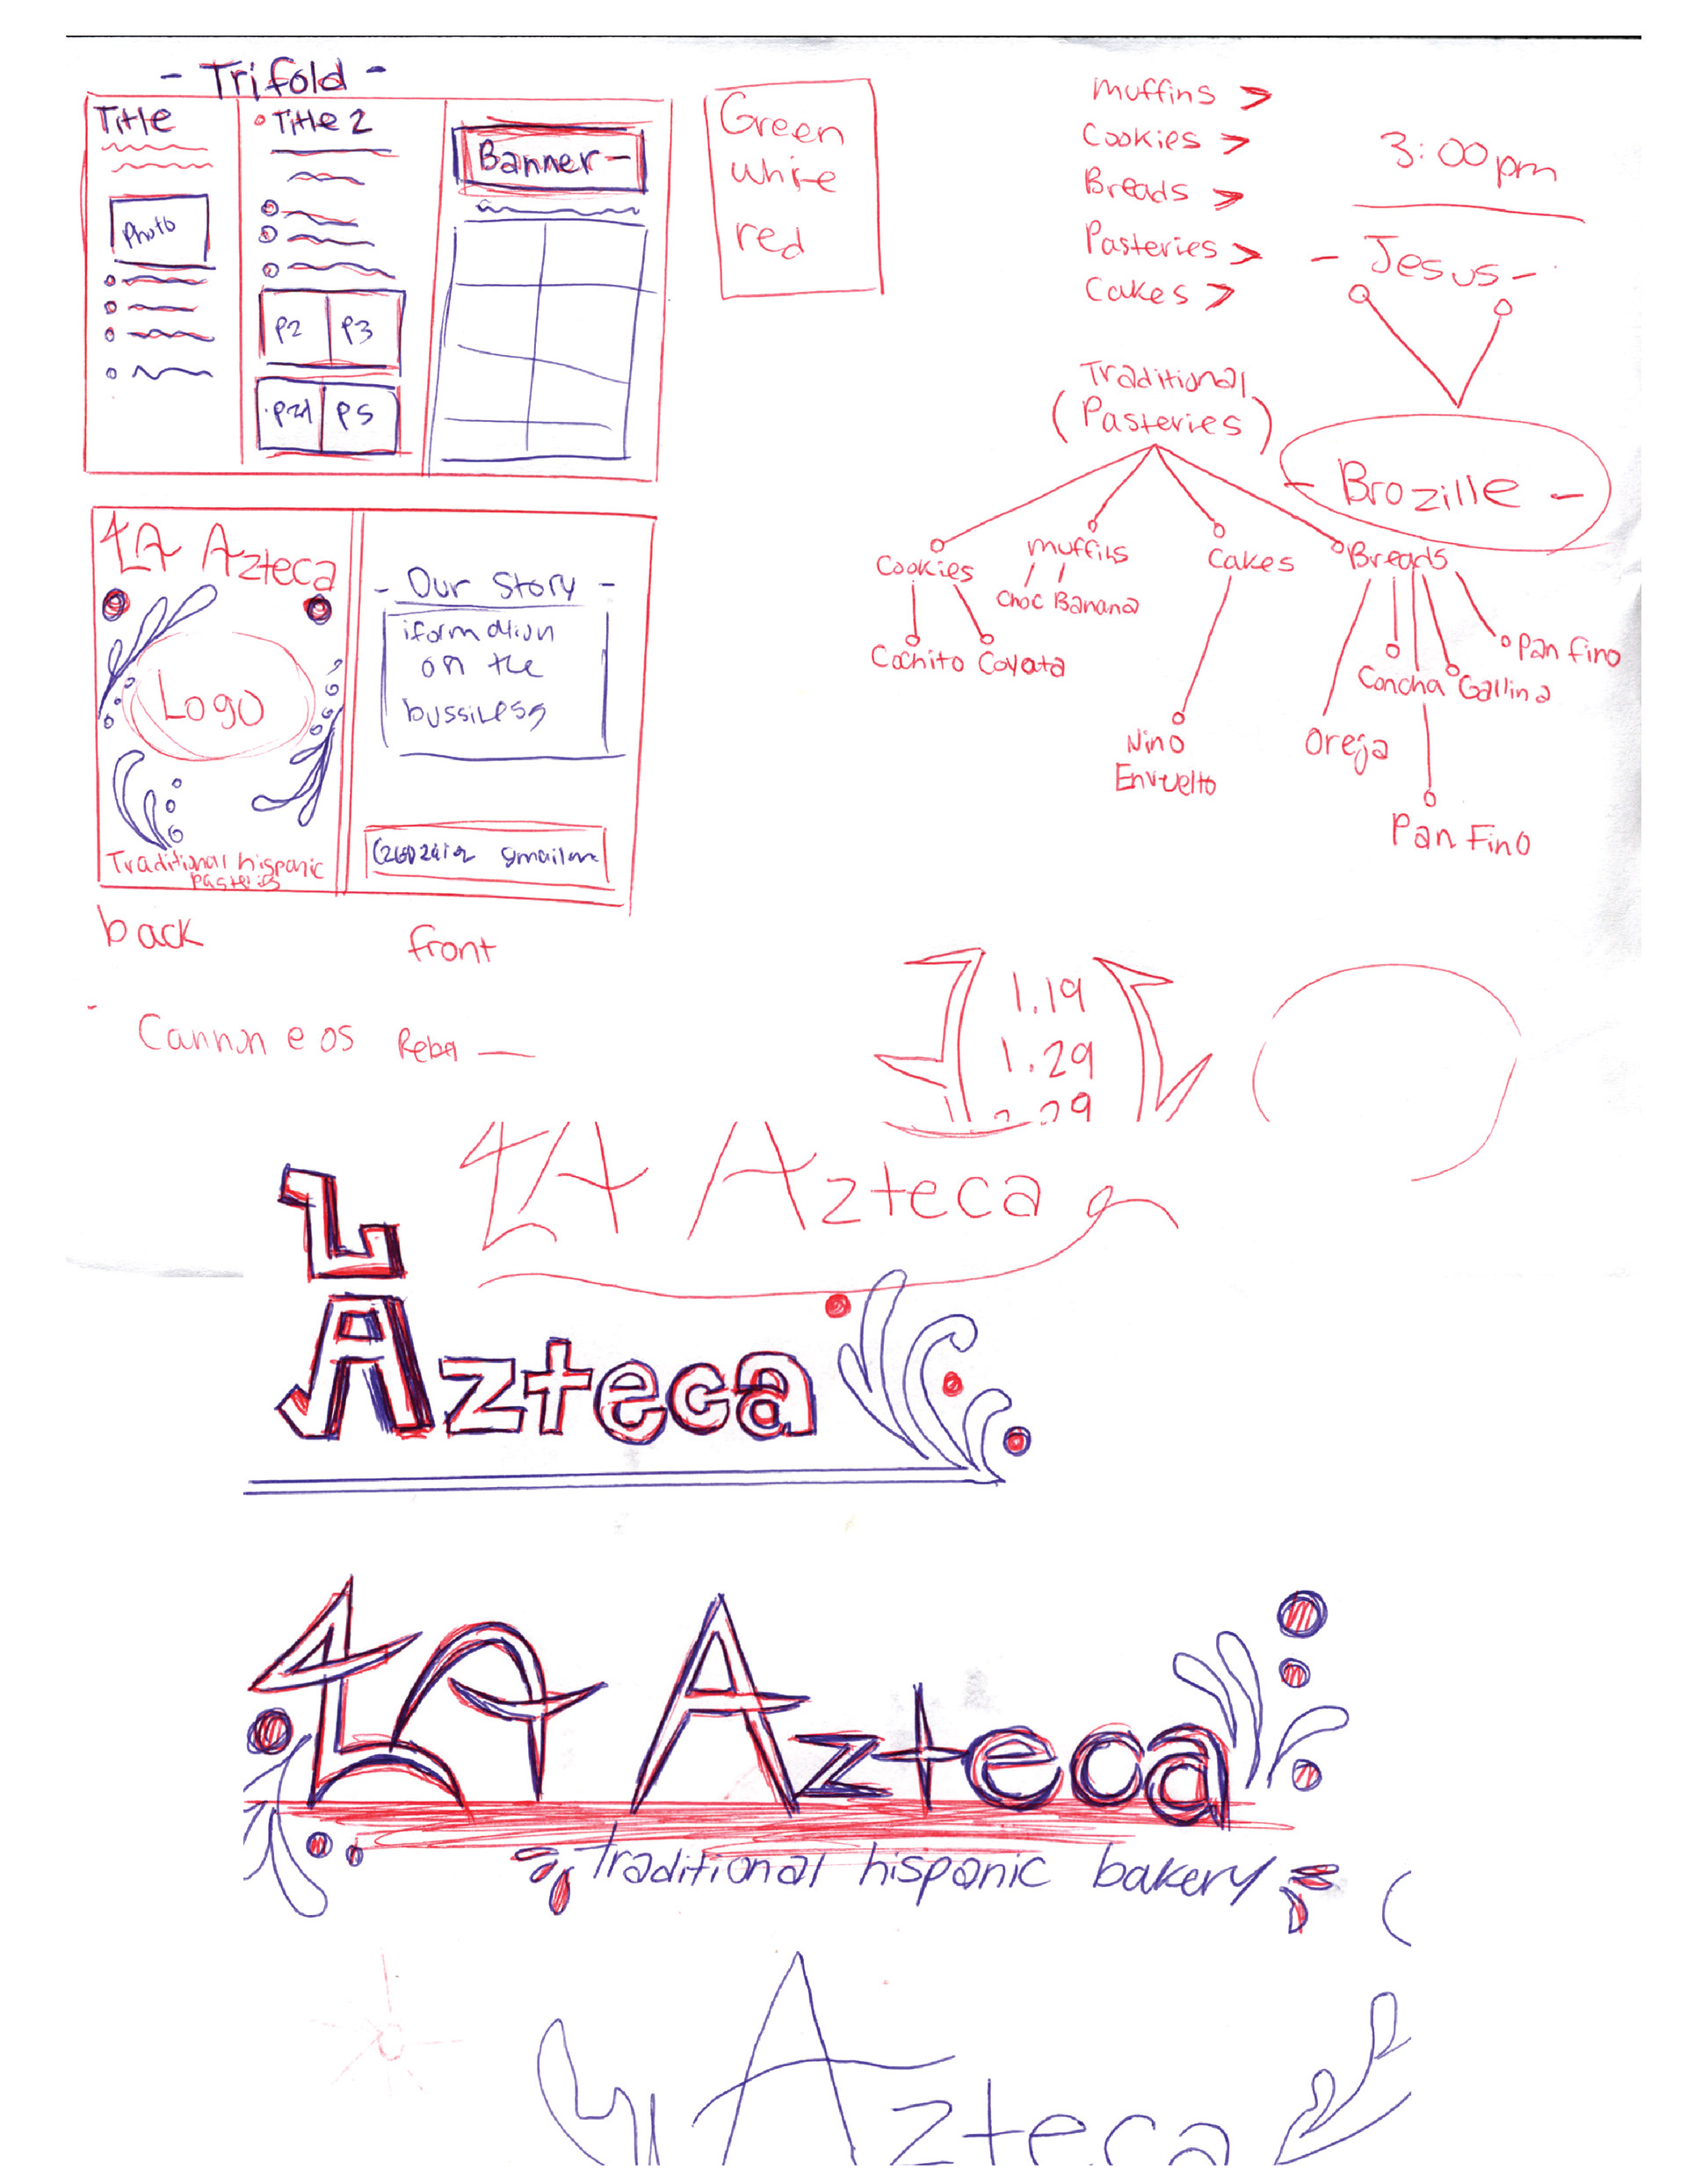 - Trifold -
Title
Photo
Title 2
P2 P3
P4 P5
Banner
Green
white
red
Muffins >
Cookies >
Breads >
Pasteries >
Cakes >
3:00pm
- Jesus -
- Brozille -
Traditional
(Pasteries)
Cookies
Cochito Coyota
Muffins
Choc Banana
Cakes
Nino
Envuelto
Breads
Oreja
Concha
Gallina
Pan fino
Pan Fino
LA Azteca
Logo
Traditional hispanic
pasteries
- Our Story -
iformation
on the
bussiness
back
front
1.19
1.29
LA Azteca
LA
Azteca
LA Azteca
Traditional hispanic bakery
Azteca